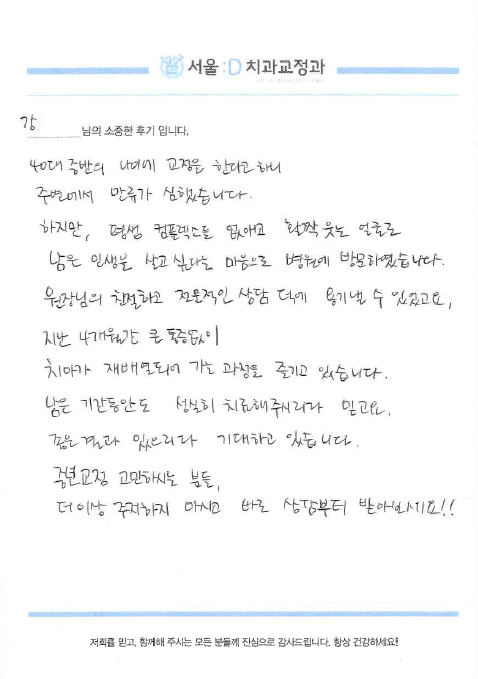 서울:D 치과교정과
강 님의 소중한 후기 입니다.
40대 중반의 나이에 교정을 한다고 하니
주변에서 만류가 심했습니다.
하지만, 평생 컴플렉스를 없애고 활짝 웃는 얼굴로
남은 인생을 살고 싶다는 마음으로 병원에 방문하였습니다.
원장님의 친절하고 전문적인 상담 덕에 용기낼 수 있었고요,
지난 4개월간 큰 통증없이
치아가 재배열되어 가는 과정을 즐기고 있습니다.
남은 기간동안도 성실히 치료해주시리라 믿고요,
좋은 결과 있으리라 기대하고 있습니다.
중년교정 고민하시는 분들,
더이상 주저하지 마시고 바로 상담부터 받아보세요!!
저희를 믿고, 함께해 주시는 모든 분들께 진심으로 감사드립니다. 항상 건강하세요!!